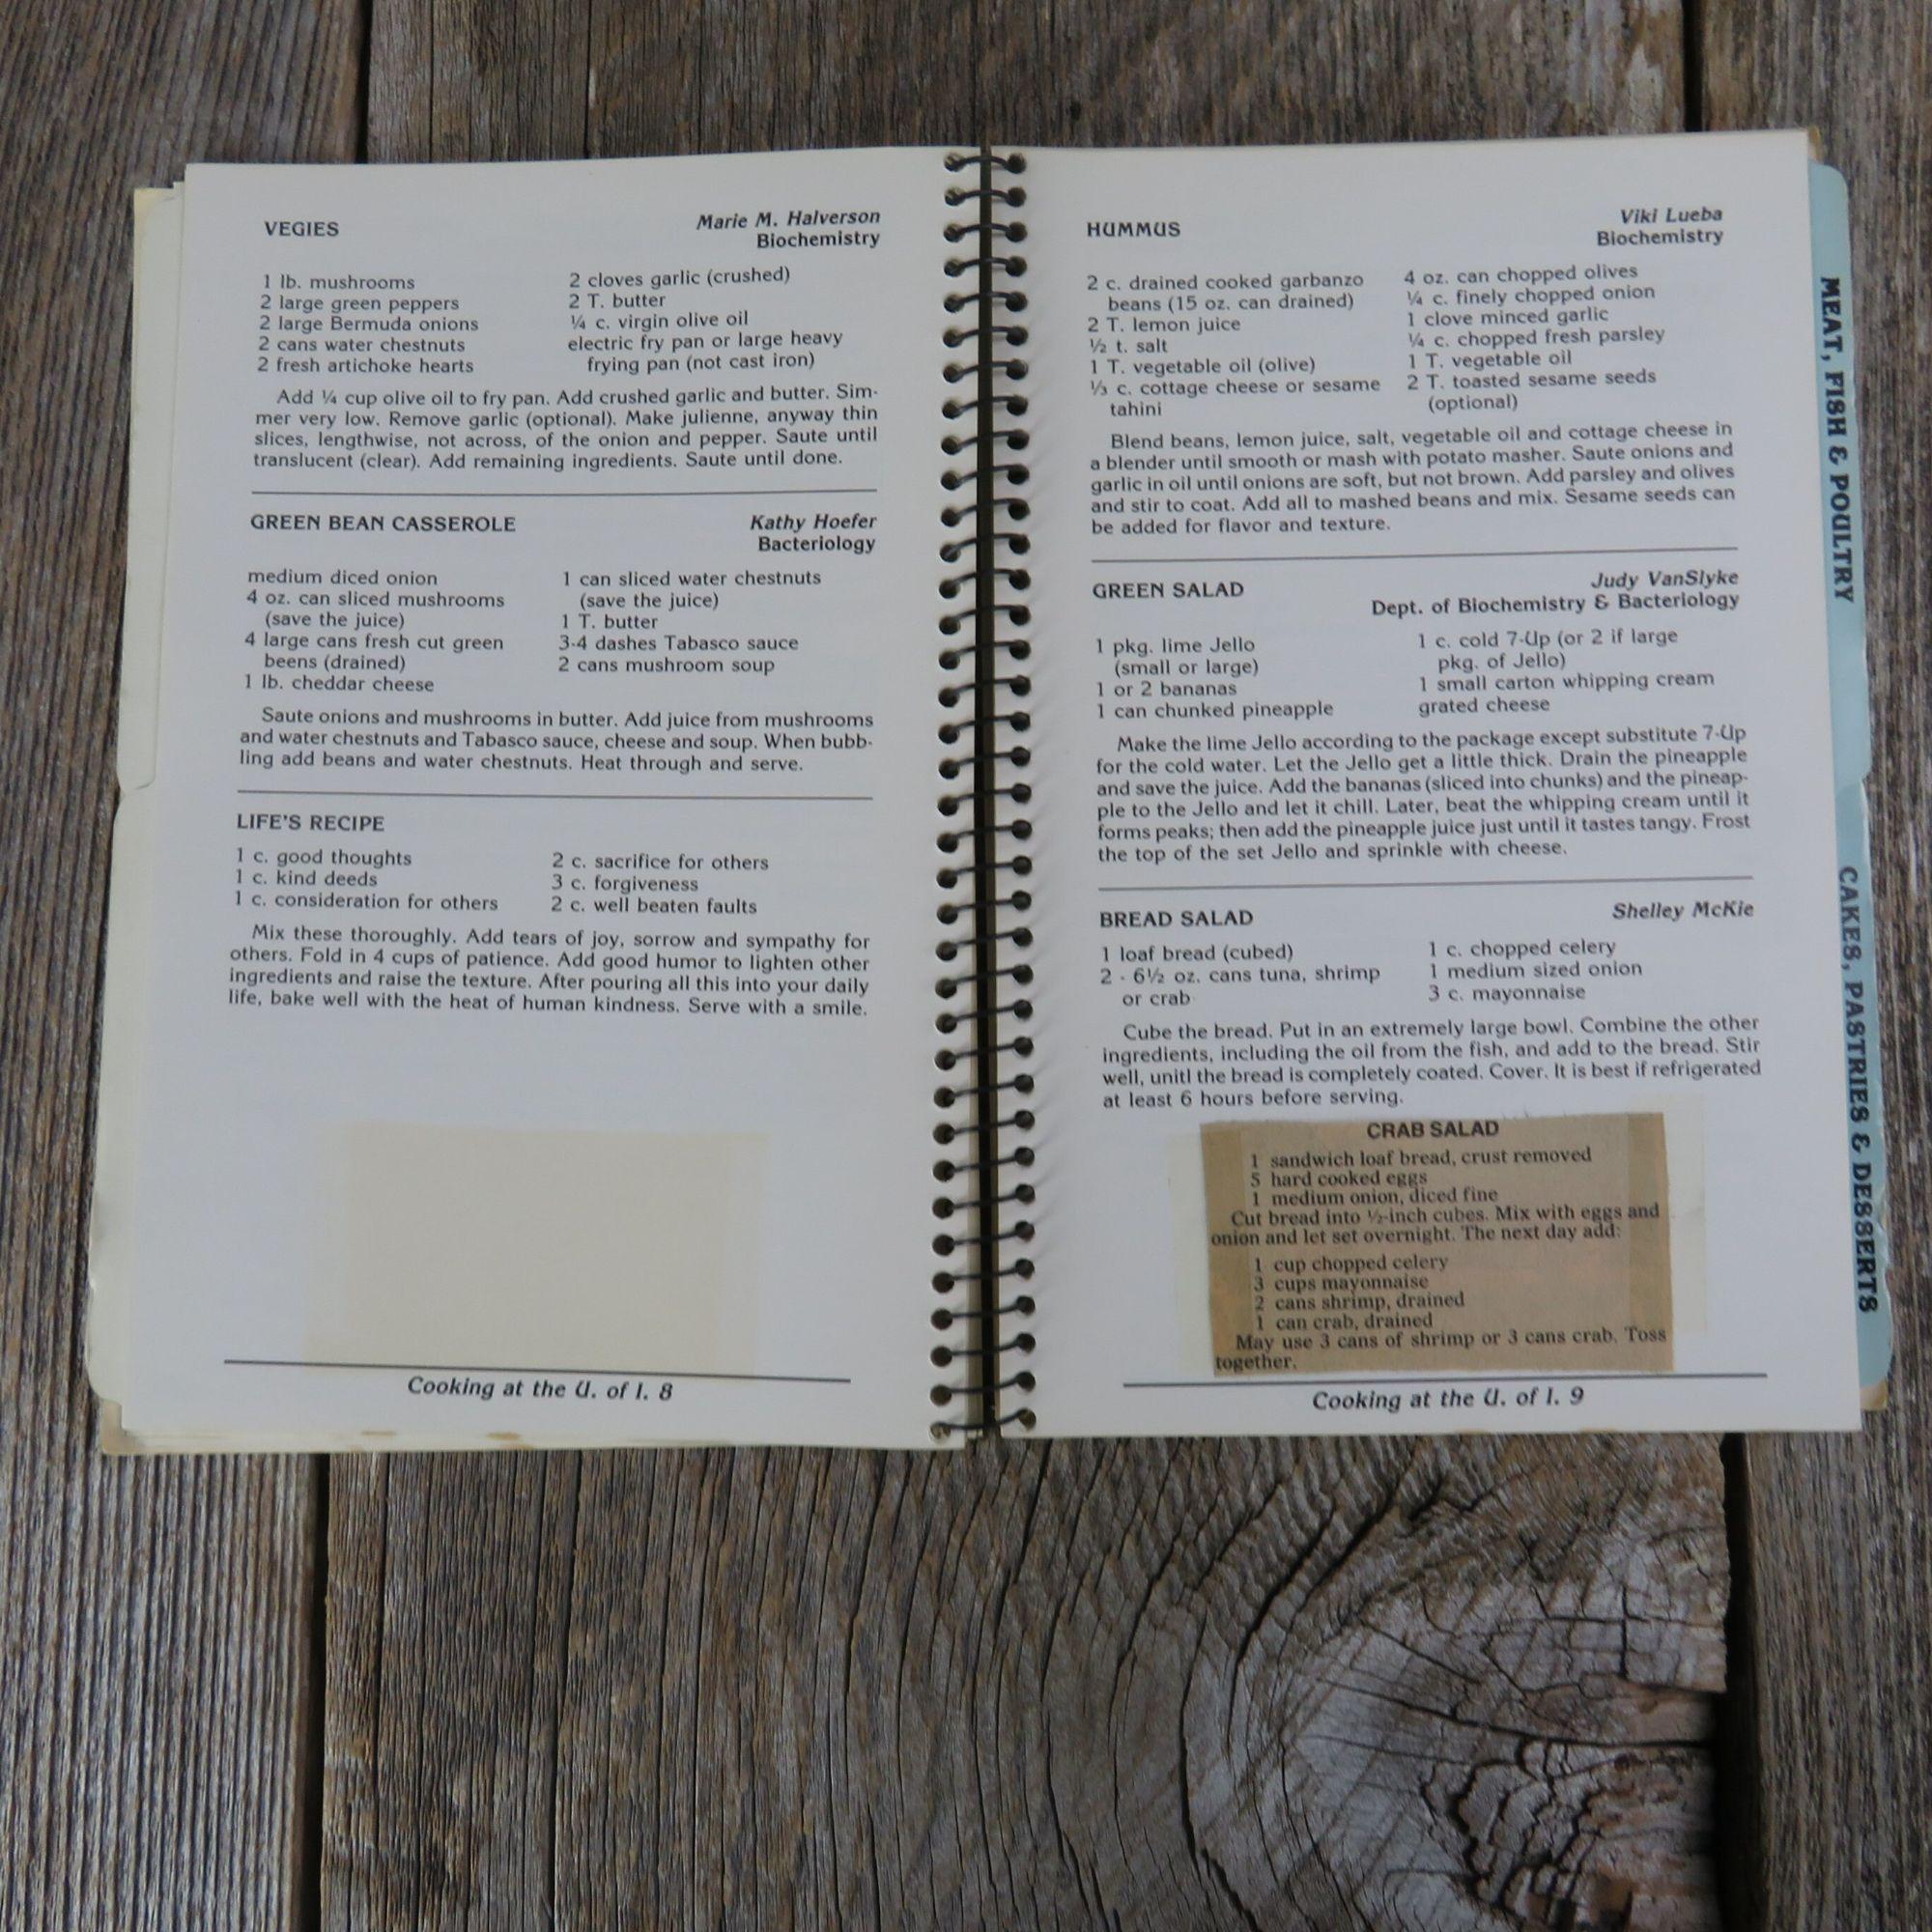 VEGIES
Marie M. Halverson
Biochemistry
1 lb. mushrooms
2 large green peppers
2 large Bermuda onions
2 cans water chestnuts
2 fresh artichoke hearts
2 cloves garlic (crushed)
2 T. butter
¼ c. virgin olive oil
electric fry pan or large heavy
frying pan (not cast iron)
Add ¼ cup olive oil to fry pan. Add crushed garlic and butter. Sim-
mer very low. Remove garlic (optional). Make julienne, anyway thin
slices, lengthwise, not across, of the onion and pepper. Saute until
translucent (clear). Add remaining ingredients. Saute until done.
GREEN BEAN CASSEROLE
Kathy Hoefer
Bacteriology
medium diced onion
4 oz. can sliced mushrooms
(save the juice)
4 large cans fresh cut green
beens (drained)
1 lb. cheddar cheese
1 can sliced water chestnuts
(save the juice)
1 T. butter
3-4 dashes Tabasco sauce
2 cans mushroom soup
Saute onions and mushrooms in butter. Add juice from mushrooms
and water chestnuts and Tabasco sauce, cheese and soup. When bubb-
ling add beans and water chestnuts. Heat through and serve.
LIFE'S RECIPE
1 c. good thoughts
1 c. kind deeds
1 c. consideration for others
2 c. sacrifice for others
3 c. forgiveness
2 c. well beaten faults
Mix these thoroughly. Add tears of joy, sorrow and sympathy for
others. Fold in 4 cups of patience. Add good humor to lighten other
ingredients and raise the texture. After pouring all this into your daily
life, bake well with the heat of human kindness. Serve with a smile.
Cooking at the U. of I. 8
HUMMUS
Viki Lueba
Biochemistry
2 c. drained cooked garbanzo
beans (15 oz. can drained)
2 T. lemon juice
½ t. salt
1 T. vegetable oil (olive)
⅓ c. cottage cheese or sesame
tahini
4 oz. can chopped olives
¼ c. finely chopped onion
1 clove minced garlic
¼ c. chopped fresh parsley
1 T. vegetable oil
2 T. toasted sesame seeds
(optional)
Blend beans, lemon juice, salt, vegetable oil and cottage cheese in
a blender until smooth or mash with potato masher. Saute onions and
garlic in oil until onions are soft, but not brown. Add parsley and olives
and stir to coat. Add all to mashed beans and mix. Sesame seeds can
be added for flavor and texture.
GREEN SALAD
Judy VanSlyke
Dept. of Biochemistry & Bacteriology
1 pkg. lime Jello
(small or large)
1 or 2 bananas
1 can chunked pineapple
1 c. cold 7-Up (or 2 if large
pkg. of Jello)
1 small carton whipping cream
grated cheese
Make the lime Jello according to the package except substitute 7-Up
for the cold water. Let the Jello get a little thick. Drain the pineapple
and save the juice. Add the bananas (sliced into chunks) and the pineap-
ple to the Jello and let it chill. Later, beat the whipping cream until it
forms peaks; then add the pineapple juice just until it tastes tangy. Frost
the top of the set Jello and sprinkle with cheese.
BREAD SALAD
Shelley McKie
1 loaf bread (cubed)
2 - 6½ oz. cans tuna, shrimp
or crab
1 c. chopped celery
1 medium sized onion
3 c. mayonnaise
Cube the bread. Put in an extremely large bowl. Combine the other
ingredients, including the oil from the fish, and add to the bread. Stir
well, unitl the bread is completely coated. Cover. It is best if refrigerated
at least 6 hours before serving.
CRAB SALAD
1 sandwich loaf bread, crust removed
5 hard cooked eggs
1 medium onion, diced fine
Cut bread into ½-inch cubes. Mix with eggs and
onion and let set overnight. The next day add:
1 cup chopped celery
3 cups mayonnaise
2 cans shrimp, drained
1 can crab, drained
May use 3 cans of shrimp or 3 cans crab. Toss
together.
Cooking at the U. of I. 9
MEAT, FISH & POULTRY
CAKES, PASTRIES & DESSERTS